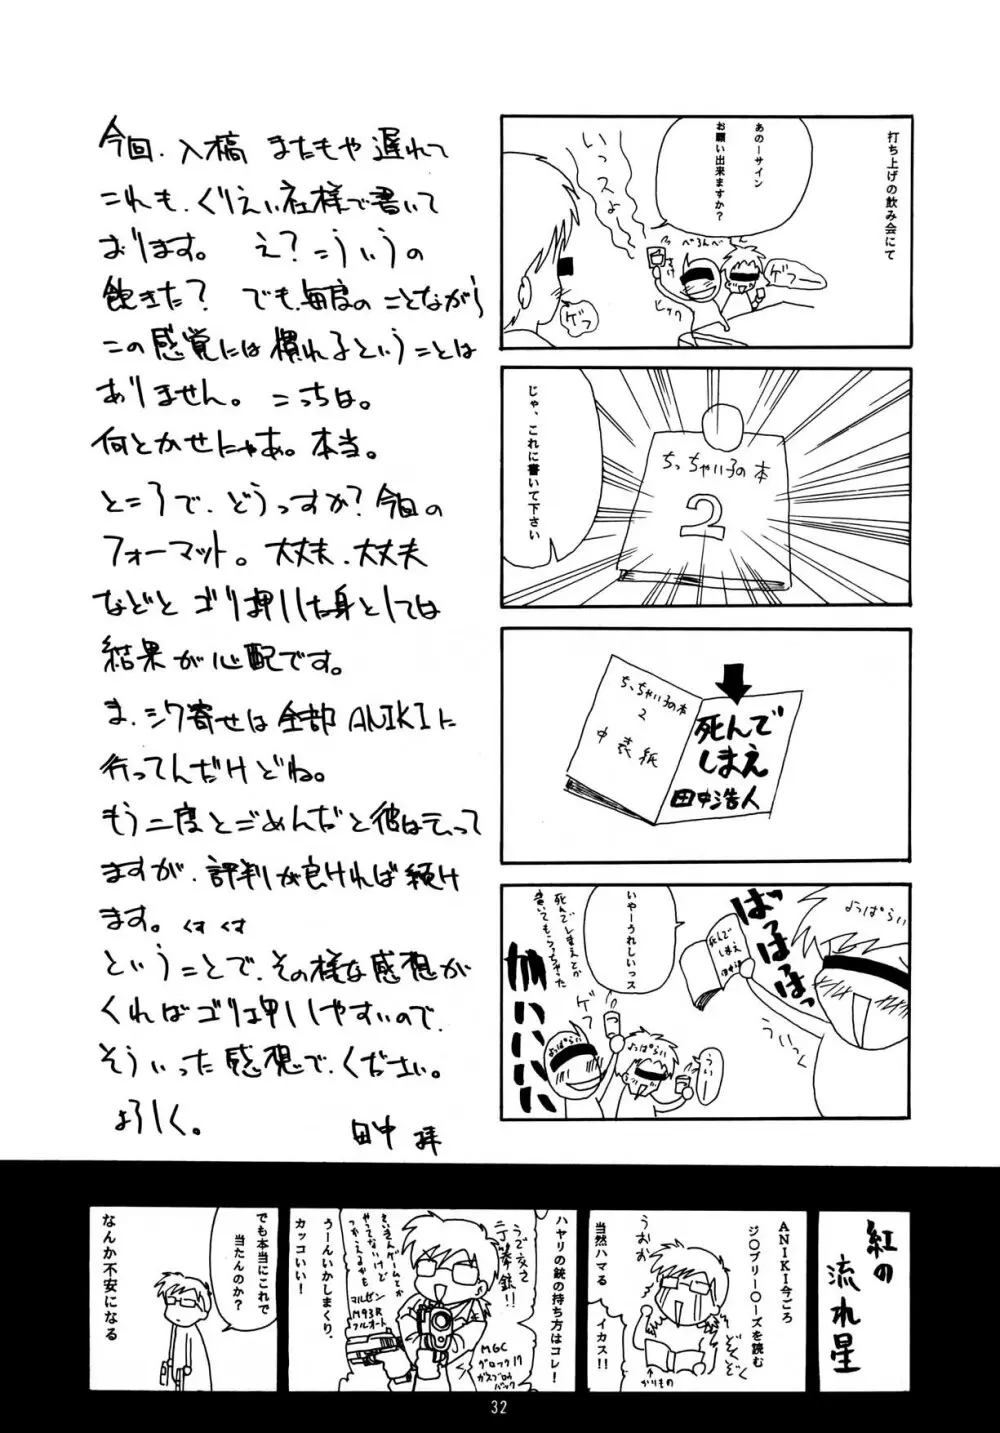 今回、入稿 またもや 遅れて
これも、くりえい社様で書いて
おります。 え？こういうの
飽きた？ でも、毎度のことながら
この感覚には慣れるということは
ありません。こっちは。
何とかせにゃあ。本当。
ところで、どうっすか？今回の
フォーマット。大丈夫、大丈夫
などと ゴリ押しした身としては
結果が心配です。
ま、シワ寄せは全部 ANIKIに
行ってんだけどね。
もう二度とごめんだと彼は云って
ますが、評判が良ければ続け
ます。くす くす
ということで、その様な感想が
くればゴリ押ししやすいので、
そういった感想で、ください。
よろしく。
田中 拝
打ち上げの飲み会にて
あのーサイン
お願い出来ますか？
いっスよ
べろんべ
ゲフー
さけ
ヒック
ゲフ
じゃ、これに書いて下さい
ちっちゃい子の本
2
ちっちゃい子の本
2
中表紙
死んで
しまえ
田中浩人
よっぱらい
ばっはっはっはっ
死んで
しまえ
ういっく
いやーうれしいっス
死んでしまえとか
書いてもらっちゃった
ゲフ
よっぱらい
よっぱらい
ういー
紅の
流れ星
ANIKI今ごろ
ジ○ブリー○ーズを読む
うおお
ぞくぞく
かりもの
当然ハマる イカス！！
ハヤリの銃の持ち方はコレ！
うで交さ
二丁拳銃！！
MGC
グロック17
ガスブロー
バック
さいきんゲームとか
やってないけど
つかえるかも
マルゼン
M93R
フルオート
うーんいかしまくり、
カッコいい！
でも本当にこれで
当たんのか？
なんか不安になる
32